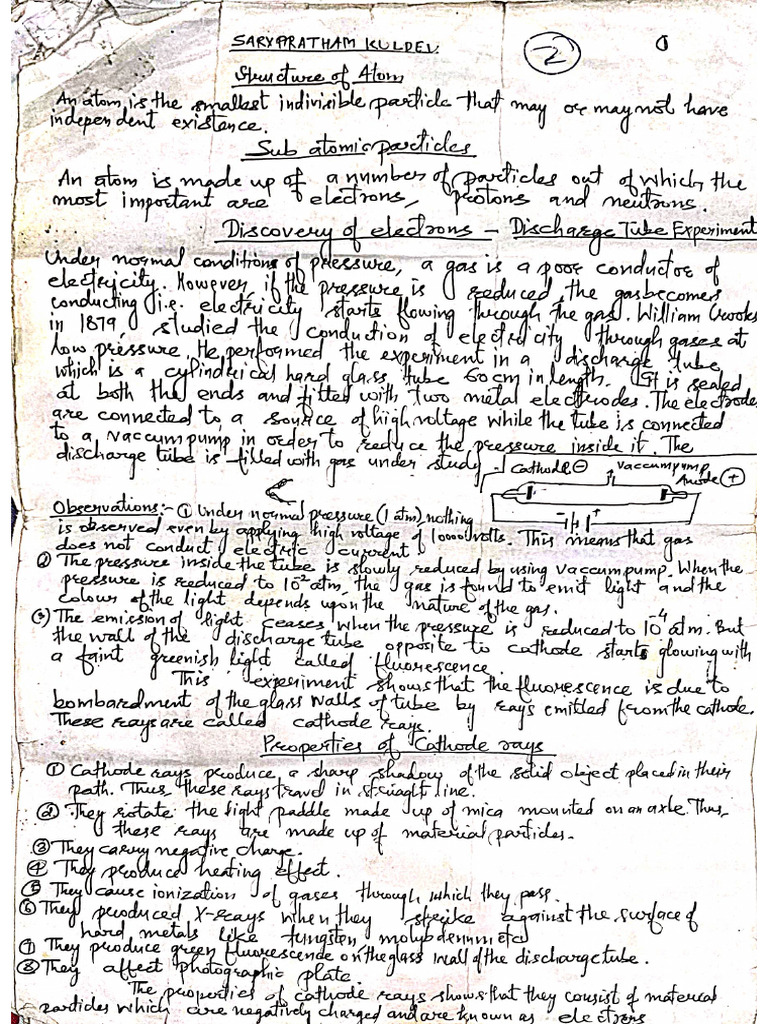 SARVPRATHAM KULDEV.
2
Structure of Atom
An atom is the smallest indivisible particle that may or may not have
independent existence.
Sub atomic particles
An atom is made up of a number of particles out of which the
most important are electrons, protons and neutrons.
Discovery of electrons – Discharge Tube Experiment
Under normal conditions of pressure, a gas is a poor conductor of
electricity. However, if the pressure is reduced, the gas becomes
conducting i.e. electricity starts flowing through the gas. William Crooks
in 1879, studied the conduction of electricity through gases at
low pressure. He performed the experiment in a discharge tube
which is a cylindrical hard glass tube 60cm in length. It is sealed
at both the ends and fitted with two metal electrodes. The electrodes
are connected to a source of high voltage while the tube is connected
to a vaccum pump in order to reduce the pressure inside it. The
discharge tube is filled with gas under study.
Cathode ⊖ Vaccum pump
Anode ⊕
- +
Observations:- ① Under normal pressure (1 atm) nothing
is observed even by applying high voltage of 10000 volts. This means that gas
does not conduct electric current.
② The pressure inside the tube is slowly reduced by using vaccum pump. When the
pressure is reduced to 10⁻² atm, the gas is found to emit light and the
colour of the light depends upon the nature of the gas.
③ The emission of light ceases when the pressure is reduced to 10⁻⁴ atm. But
the wall of the discharge tube opposite to cathode starts glowing with
a faint greenish light called fluorescence.
This experiment shows that the fluorescence is due to
bombardment of the glass walls of tube by rays emitted from the cathode.
These rays are called cathode rays
Properties of Cathode rays
① Cathode rays produce a sharp shadow of the solid object placed in their
path. Thus these rays travel in straight line.
② They rotate the light paddle made up of mica mounted on an axle. Thus,
these rays are made up of material particles.
③ They carry negative charge.
④ They produce heating effect.
⑤ They cause ionization of gases through which they pass.
⑥ They produced X-rays when they strike against the surface of
hard metals like tungsten, molybdenum etc
⑦ They produce green fluorescence on the glass wall of the discharge tube.
⑧ They affect photographic plate
The properties of cathode rays shows that they consist of material
particles which are negatively charged and are known as electrons